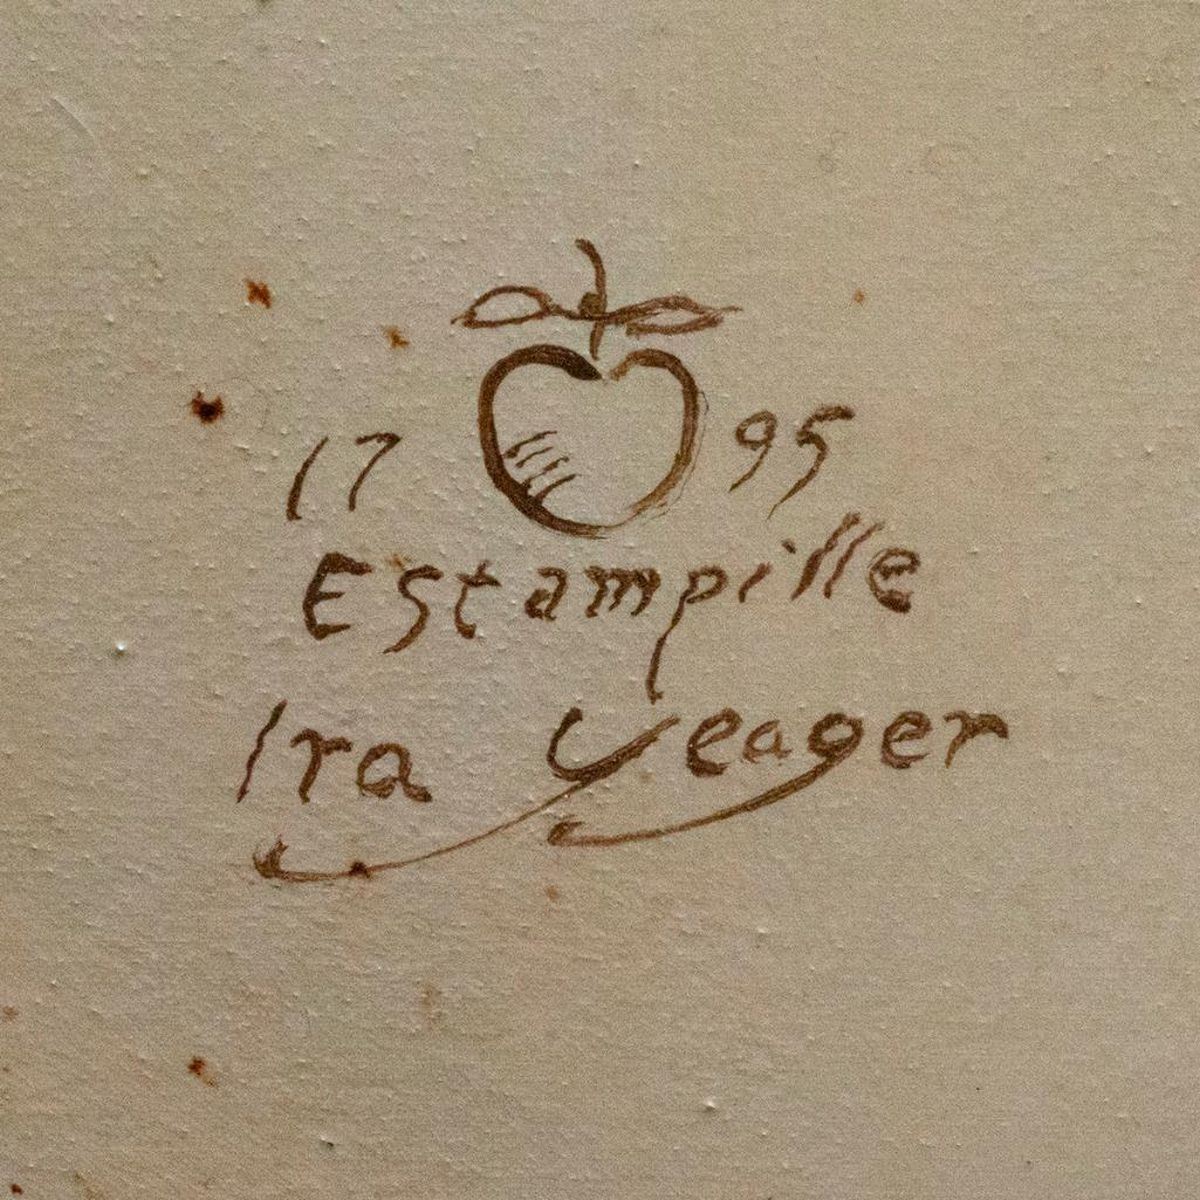 17 95
Estampille
Ira Yeager